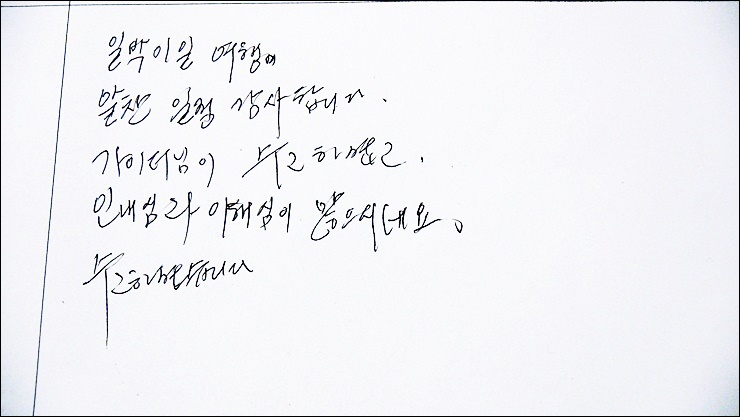 일박이일 여행에
알찬 일정 감사합니다.
가이더님이 수고하셨고.
인내심과 이해심이 많으시네요.
수고하셨습니다